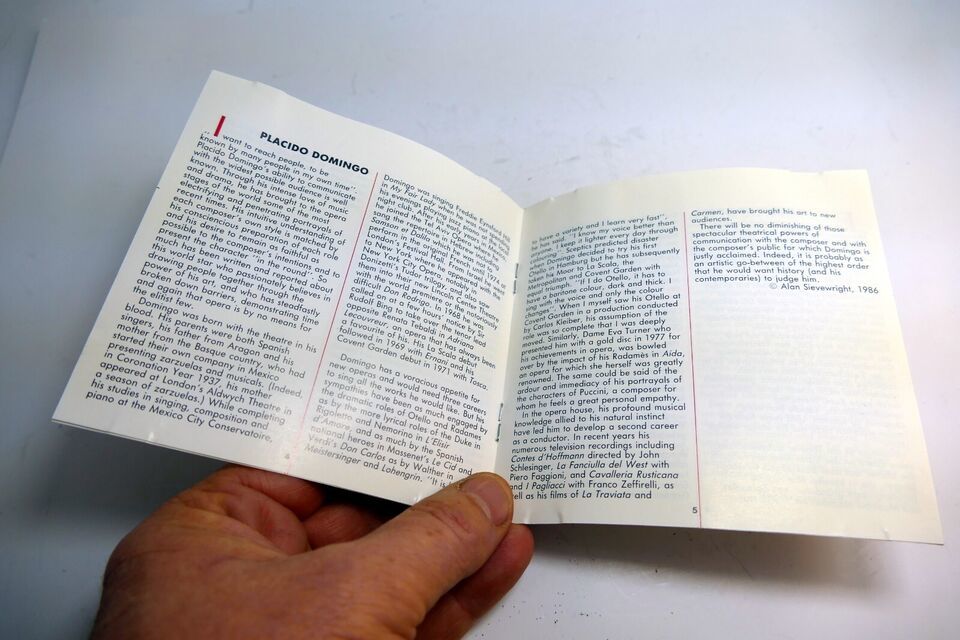 PLACIDO DOMINGO
"I want to reach people, to be
known by many people in my own time".
Placido Domingo's ability to communicate
with the widest possible audience is well
known. Through his intense love of music
and drama, he has brought to the opera
stages of the world some of the most
electrifying and penetrating portrayals of
recent times. His intuitive understanding of
each composer's own style is matched by
his conscientious preparation of each role
and his desire to remain as faithful as
possible to the composer's intentions and to
the character "in the round". So
much has been written and debated about
this world star who passionately believes in
drawing people together through the
power of his art, and who has steadfastly
broken down barriers, demonstrating time
and again that opera is by no means for
the elitist few.
Domingo was born with the theatre in his
blood. His parents were both Spanish
singers, his father from Aragon and his
mother from the Basque country, who had
started their own company in Mexico
presenting zarzuelas and musicals. (Indeed,
in Coronation Year 1937, his mother
appeared at London's Aldwych Theatre in
a season of zarzuelas.) While completing
his studies in singing, composition and
piano at the Mexico City Conservatoire,
Domingo was singing Freddie Eynsford Hill
in My Fair Lady when he was not spending
his evenings playing the piano in a
night club. After his early years in
he joined the Tel Aviv Opera where he
sang the tenor repertoire including
Samson et Dalila which he was until 1974 to
perform in the Hemel Press. From Israel
London's Festival Hall. From Israel he went
to New York where he appeared with the
New York City Opera, notably in
Donizetti's Tudor Trilogy, and also saw
them into their new Lincoln Center Theatre
with the world premiere of Ginastera's
difficult Don Rodrigo. In 1968 he was
called on at short notice by Sir
Rudolf Bing to take over the tenor lead
opposite Renata Tebaldi in Adriana
Lecouvreur, an opera that has always been
a favourite of his. His La Scala debut
followed in 1969 with Ernani and his
Covent Garden debut in 1971 with Tosca.
Domingo has a voracious appetite for
new operas and would need three careers
to sing all the works he would like. But his
sympathies have been as much engaged by
the dramatic roles of Otello and Radames
as by the more lyrical roles of the Duke in
Rigoletto and Nemorino in L'Elisir
d'Amore, and as much by the Spanish
national heroes in Massenet's Le Cid and
Verdi's Don Carlos as by Walther in
Meistersinger and Lohengrin. "It is
4
to have a variety and I learn very fast",
he has said. "I know my voice better than
anyone. I keep it lighter every day through
vocalizing". Sceptics predicted disaster
when Domingo decided to try his first
Otello in Hamburg but he has subsequently
taken his Moor to La Scala, the
Metropolitan and Covent Garden with
equal triumph. "If I do Otello, it has to
have a baritone colour, dark and thick. I
sing with the voice and only the colour
changes". When I myself saw his Otello at
Covent Garden in a production conducted
by Carlos Kleiber, his assumption of the
role was so complete that I was deeply
moved. Similarly, Dame Eva Turner who
presented him with a gold disc in 1977 for
his achievements in opera, was bowled
over by the impact of his Radamès in Aida,
an opera for which she herself was greatly
renowned. The same could be said of the
ardour and immediacy of his portrayals of
the characters of Puccini, a composer for
whom he feels a great personal empathy.
In the opera house, his profound musical
knowledge allied to his natural instinct
have led him to develop a second career
as a conductor. In recent years his
numerous television recordings including
Contes d'Hoffmann directed by John
Schlesinger, La Fanciulla del West with
Piero Faggioni, and Cavalleria Rusticana
and I Pagliacci with Franco Zeffirelli, as
well as his films of La Traviata and
5
Carmen, have brought his art to new
audiences.
There will be no diminishing of those
spectacular theatrical powers of
communication with the composer and with
the composer's public for which Domingo is
justly acclaimed. Indeed, it is probably as
an artistic go-between of the highest order
that he would want history (and his
contemporaries) to judge him.
© Alan Sievewright, 1986